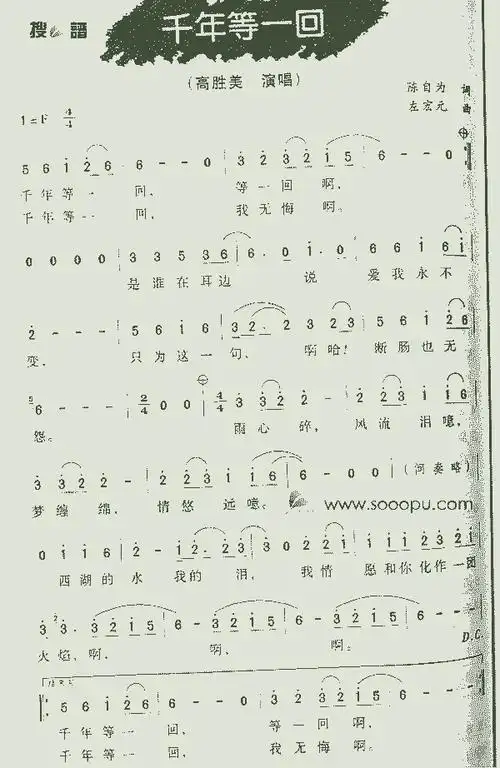 搜 譜
千年等一回
(高胜美 演唱)
陈自为 词
左宏元 曲
1=F 4/4
5 6 i 2 6 6 - - 0 3 2 3 2 i 5 6 - - 0
千年等一 回, 等一回啊,
千年等一 回, 我无悔啊。
0 0 0 0 3 3 5 3 6 6· 0 i· 0 6 6 i 6 i
是谁在耳边 说 爱我永不
2 - - - 5 6 i 6 3 2· 2 3 2 3 5 6 i 2 6
变, 只为这一句, 啊哈! 断肠也无
6 - - - 2/4 0 0 4/4 3 3 2 2 - 2 2 3 i i 6
怨。 雨心碎, 风流泪噫,
3 3 2 2 - 2 2 3 i i 6 6 - 0 0 (间奏略)
梦缠绵, 情悠远噫。
www.sooopu.com
0 i i 6 2 - i 2· 2 3 3 0 2 2 i i i i 2 3 2 i
西湖的水 我的泪, 我情愿和你化作一团
3 2 3· 3 2 i 5 6 - 3 2 i 5 6 - 3 2 i 5 6 - - -
火焰,啊, 啊, 啊。
D.C.
5 6 i 2 6 6 - - 0 3 2 3 2 i 5 6 - - -
千年等一 回, 等一回啊,
千年等一 回, 我无悔啊。